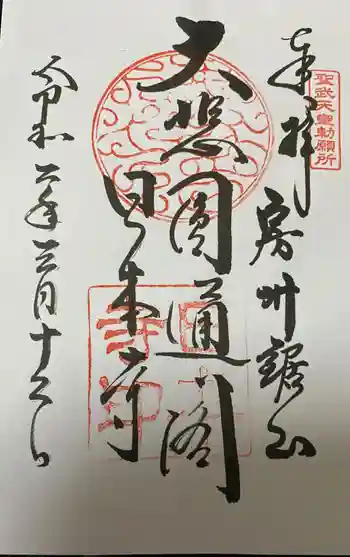 聖武天皇勅願所
奉拝
房州鋸山
大悲圓通閣
日本寺
令和六年三月十六日